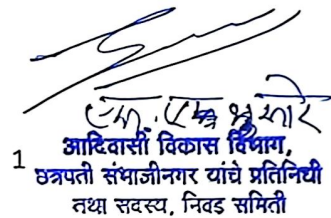 1
आदिवासी विकास विभाग,
छत्रपती संभाजीनगर यांचे प्रतिनिधी
तथा सदस्य, निवड समिती